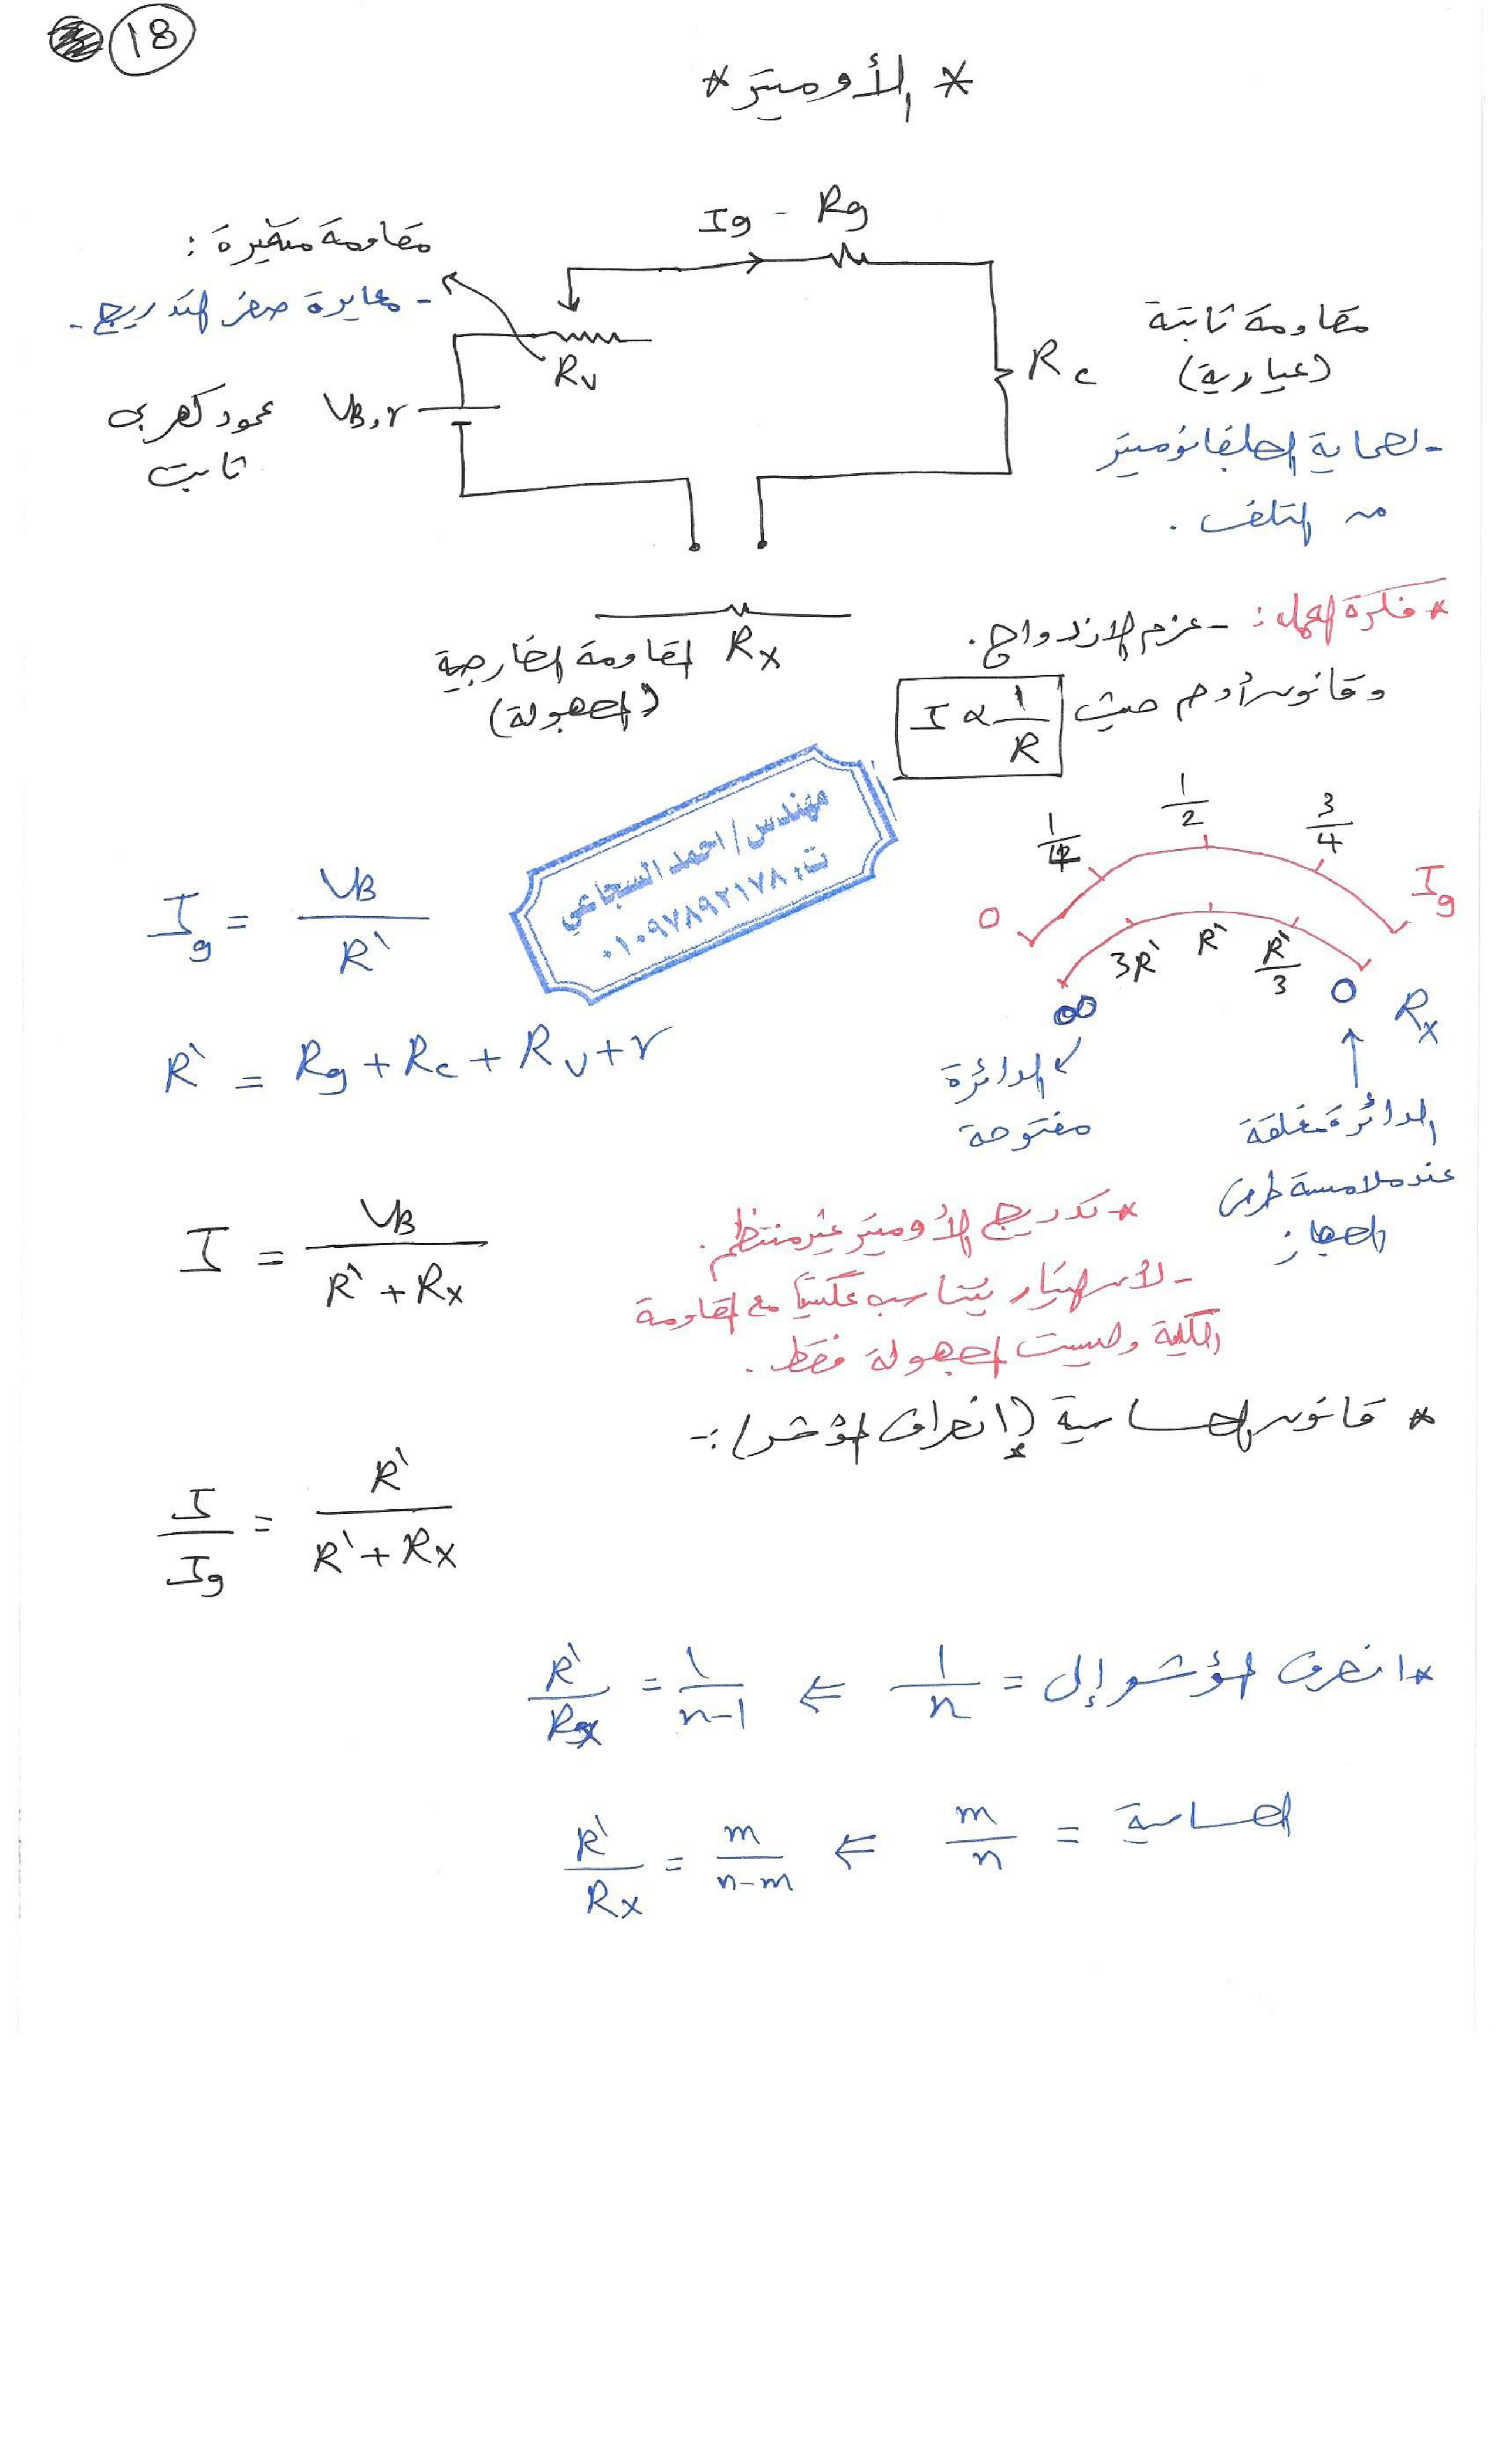 18
* الأوميتر *
Ig - Rg
مقاومة متغيرة :
- معايرة صفر التدريج.
Rv
عمود كهربى
ثابت
VB, r
Rc
مقاومة ثابتة
(عيارية)
- لحماية الجلفانوميتر
من التلف .
Rx
المقاومة الخارجية
(المجهولة)
* فكرة العمل : - عزم الازدواج .
وقانون أوم حيث I ∝ 1/R
مهندس / احمد السجاعي
ت: ٠١٠٩٧٨٩٢١٧٨
0 1/4 1/2 3/4 Ig
∞ 3R` R` R`/3 0 Rx
الدائرة
مفتوحة
الدائرة مغلقة
عند ملامسة طرفى
الجهاز
Ig = VB / R`
R` = Rg + Rc + Rv + r
I = VB / (R` + Rx)
* تدريج الأوميتر غير منتظم .
- لأن التيار يتناسب عكسياً مع المقاومة
الكلية وليست المجهولة فقط .
* قانون الحساسية (إنحراف المؤشر) :-
I / Ig = R` / (R` + Rx)
* انحرف المؤشر إلى = 1/n ⇐ R`/Rx = 1/(n-1)
الحساسية = m/n ⇐ R`/Rx = m/(n-m)